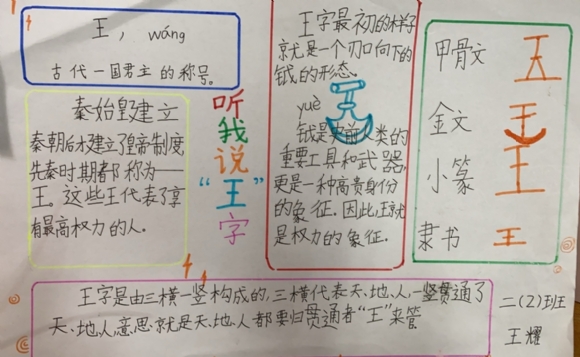 王，wáng
古代一国君主的称号。
秦始皇建立
秦朝后才建立了皇帝制度，
先秦时期都称为一
王。这些王代表了享
有最高权力的人。
听
我
说
“王”
字
王字最初的样子
就是一个刃口向下的
钺的形态。
yuè
钺是史前人类的
重要工具和武器，
更是一种高贵身份
的象征。因此，王就
是权力的象征。
甲骨文
金文
小篆 王
隶书 王
王字是由三横一竖构成的，三横代表天、地、人，一竖贯通了
天、地、人，意思就是天、地、人都要归贯通者“王”来管
二（2）班
王耀